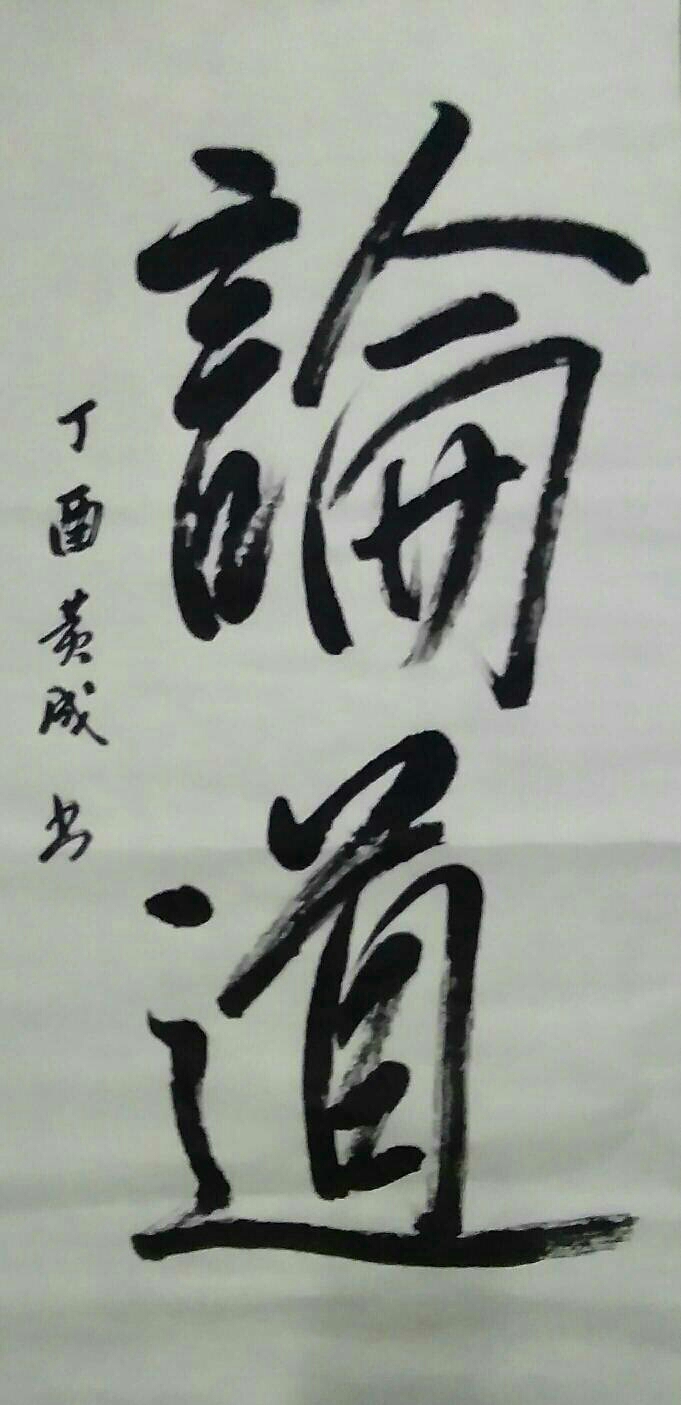 論道
丁酉黄成书